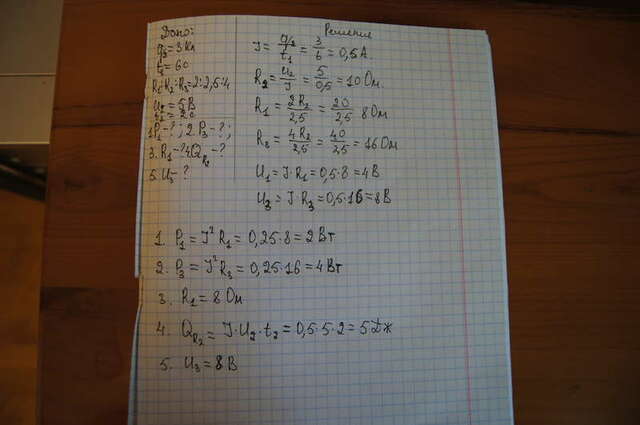 Дано:
q₃ = 3 Кл
t₁ = 6с
R₁:R₂:R₃=2:2,5:4
U₂ = 5В
t₂ = 2с
1.P₁-?; 2.P₃-?;
3. R₁-? 4.Q_R₂-?
5. U₃-?
Решение
I = q₃/t₁ = 3/6 = 0,5 А.
R₂ = U₂/I = 5/0,5 = 10 Ом.
R₁ = 2R₂/2,5 = 20/2,5 8 Ом
R₃ = 4R₂/2,5 = 40/2,5 = 16 Ом
U₁ = I·R₁ = 0,5·8 = 4 В
U₃ = I·R₃ = 0,5·16 = 8 В
1. P₁ = I²R₁ = 0,25·8 = 2 Вт
2. P₃ = I²R₃ = 0,25·16 = 4 Вт
3. R₁ = 8 Ом
4. Q_R₂ = I·U₂·t₂ = 0,5·5·2 = 5 Дж
5. U₃ = 8 В